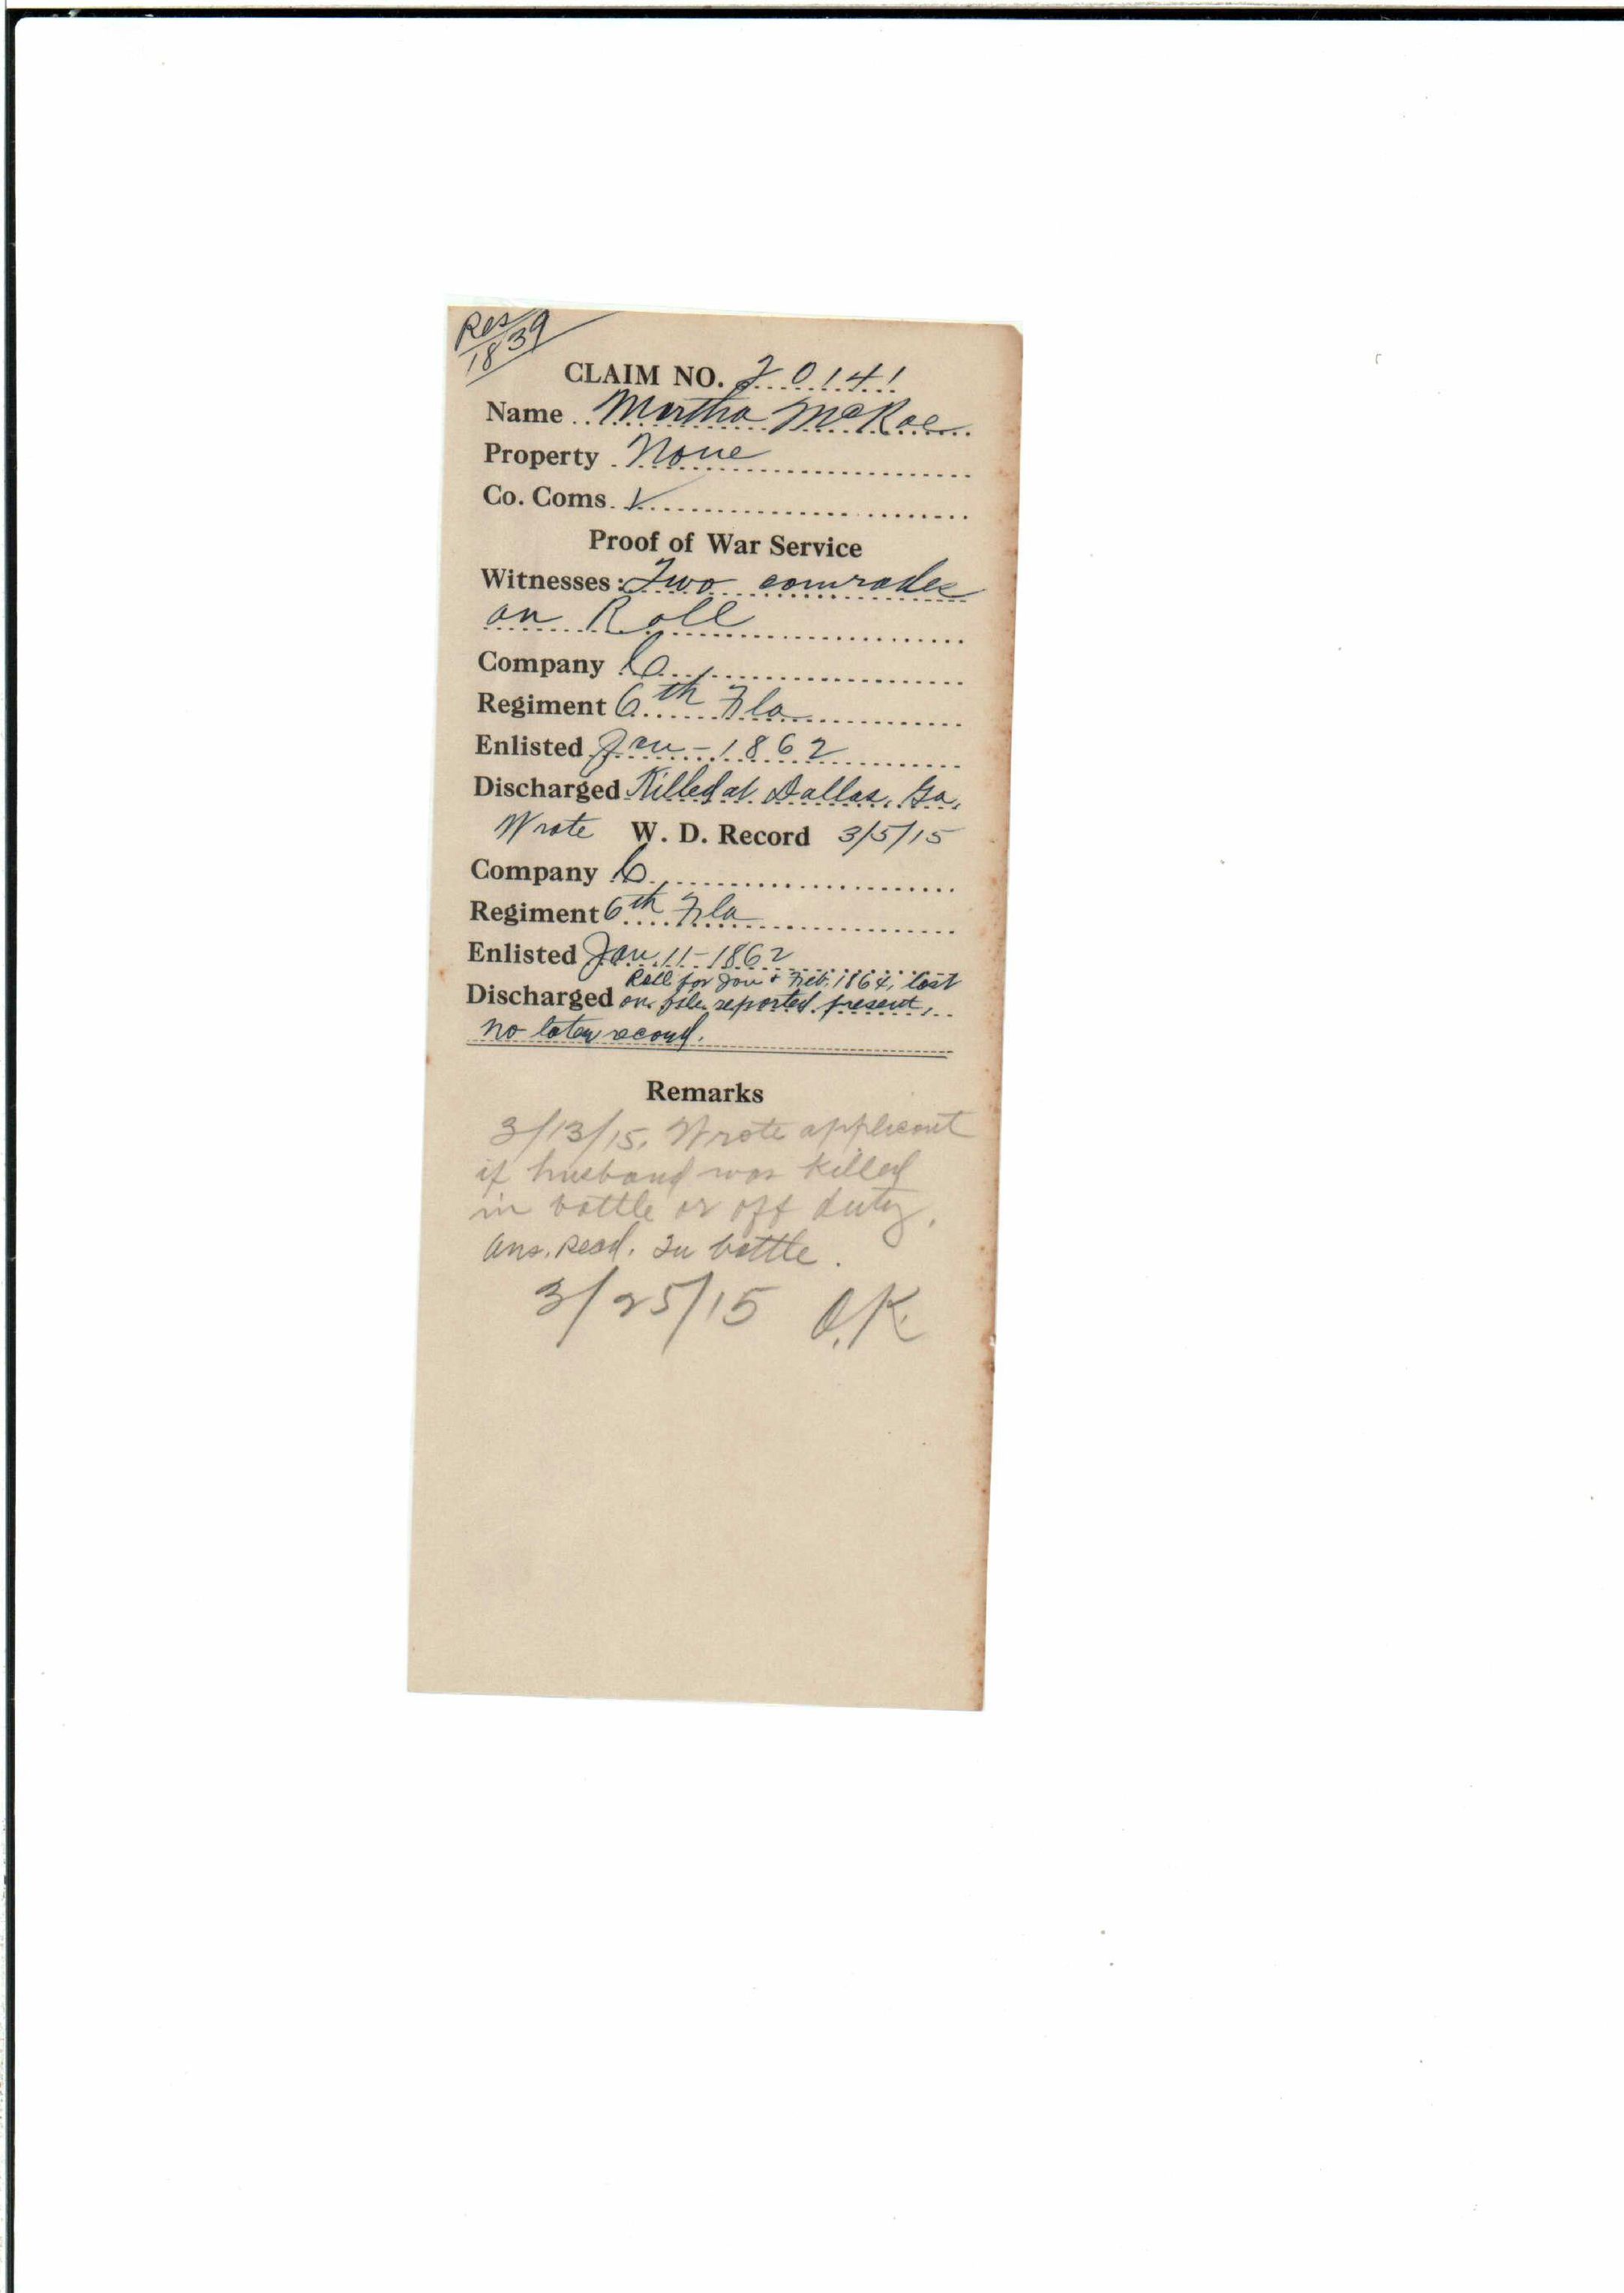 Res
1839
CLAIM NO. 20141
Name Martha McRae
Property None
Co. Coms. ✓
Proof of War Service
Witnesses: Two comrades
on Roll
Company C
Regiment 6th Fla
Enlisted Jan - 1862
Discharged Killed at Dallas, Ga.
Wrote W. D. Record 3/5/15
Company C
Regiment 6th Fla
Enlisted Jan. 11 - 1862
Roll for Jan + Feb. 1864, last
Discharged on file reported present,
no later record.
Remarks
3/13/15. Wrote applicant
if husband was killed
in battle or off duty.
Ans. Recd. In battle.
3/25/15 O.K.